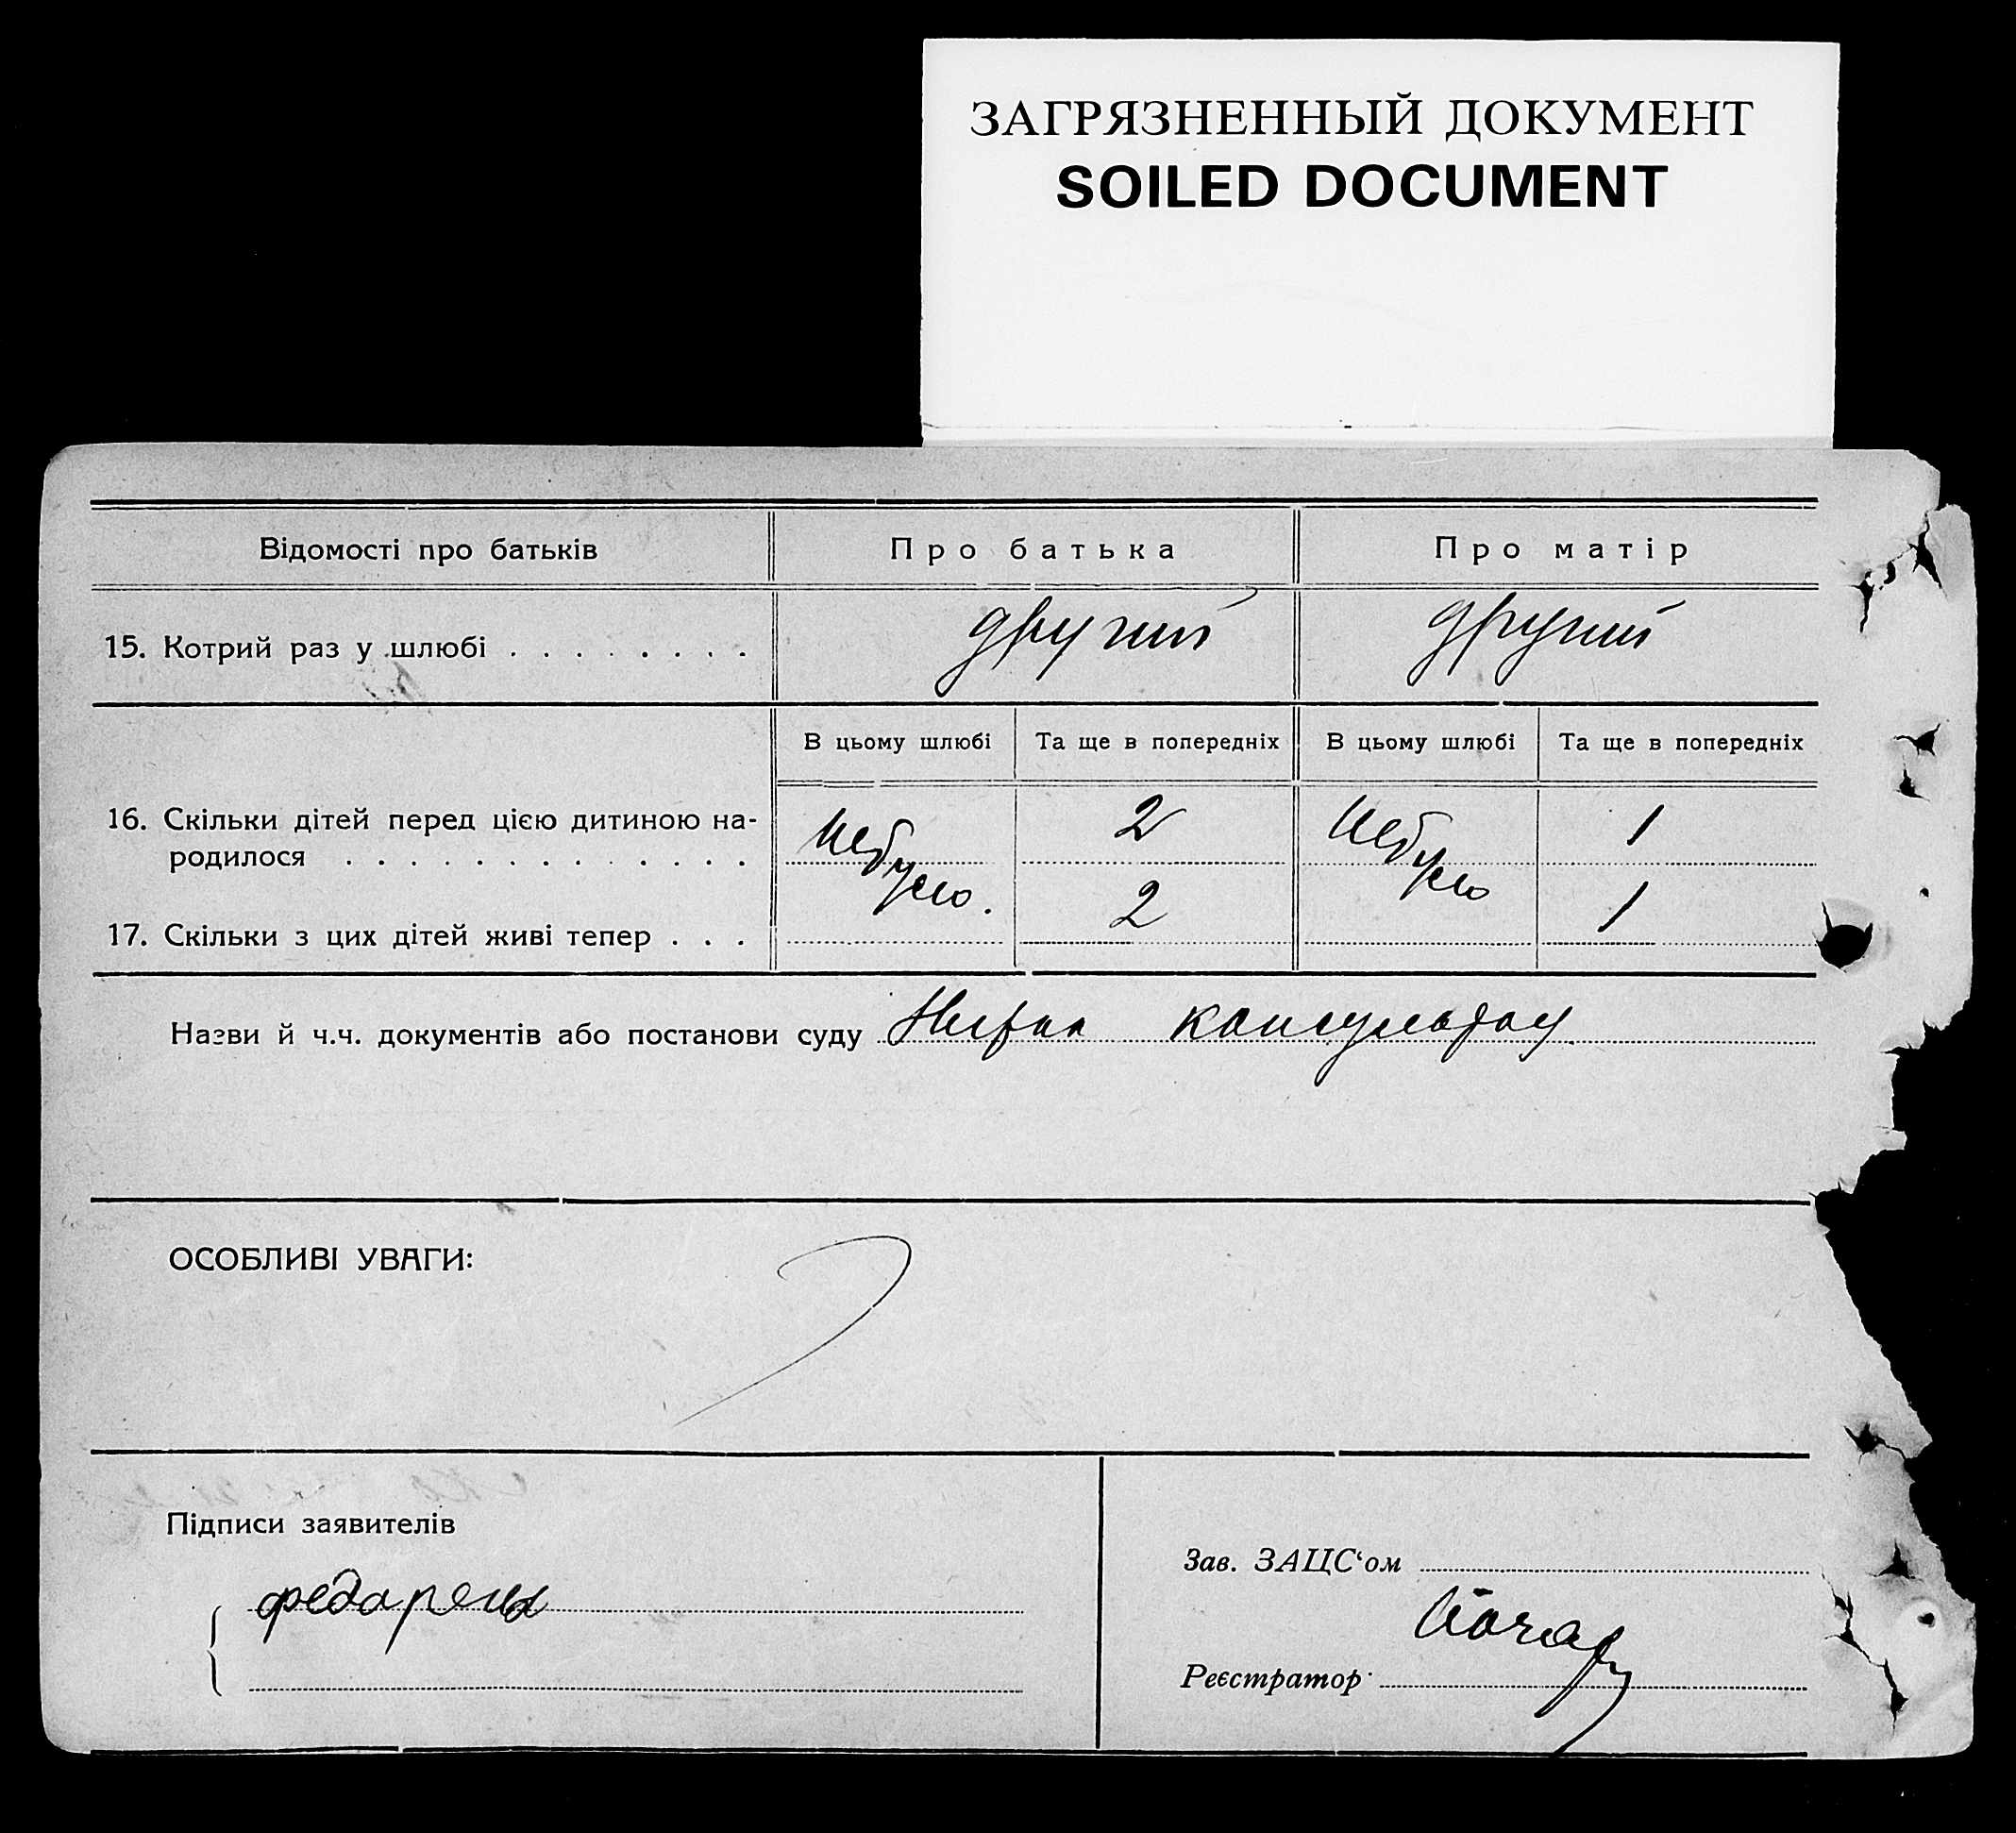 ЗАГРЯЗНЕННЫЙ ДОКУМЕНТ
SOILED DOCUMENT
Відомості про батьків Про батька Про матір
15. Котрий раз у шлюбі . . . . . . . . другий другий
В цьому шлюбі Та ще в попередніх В цьому шлюбі Та ще в попередніх
16. Скільки дітей перед цією дитиною на-
родилося . . . . . . . . . . . . . небуло. 2 небуло 1
17. Скільки з цих дітей живі тепер . . . 2 1
Назви й ч.ч. документів або постанови суду
ОСОБЛИВІ УВАГИ:
Підписи заявителів
Зав. ЗАЦС‘ом
Реєстратор